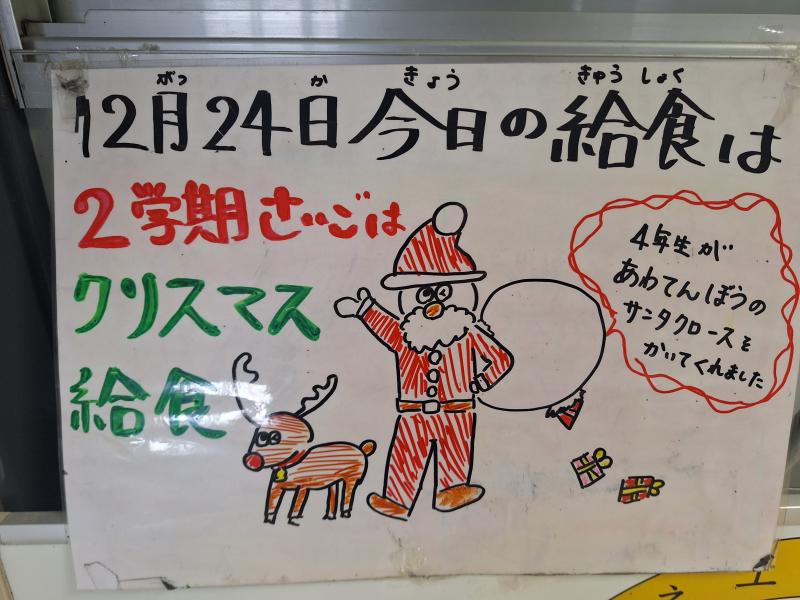 がつ か きょう きゅうしょく
12月24日今日の給食は
2学期さいごは
クリスマス
給食
4年生が
あわてんぼうの
サンタクロースを
かいてくれました